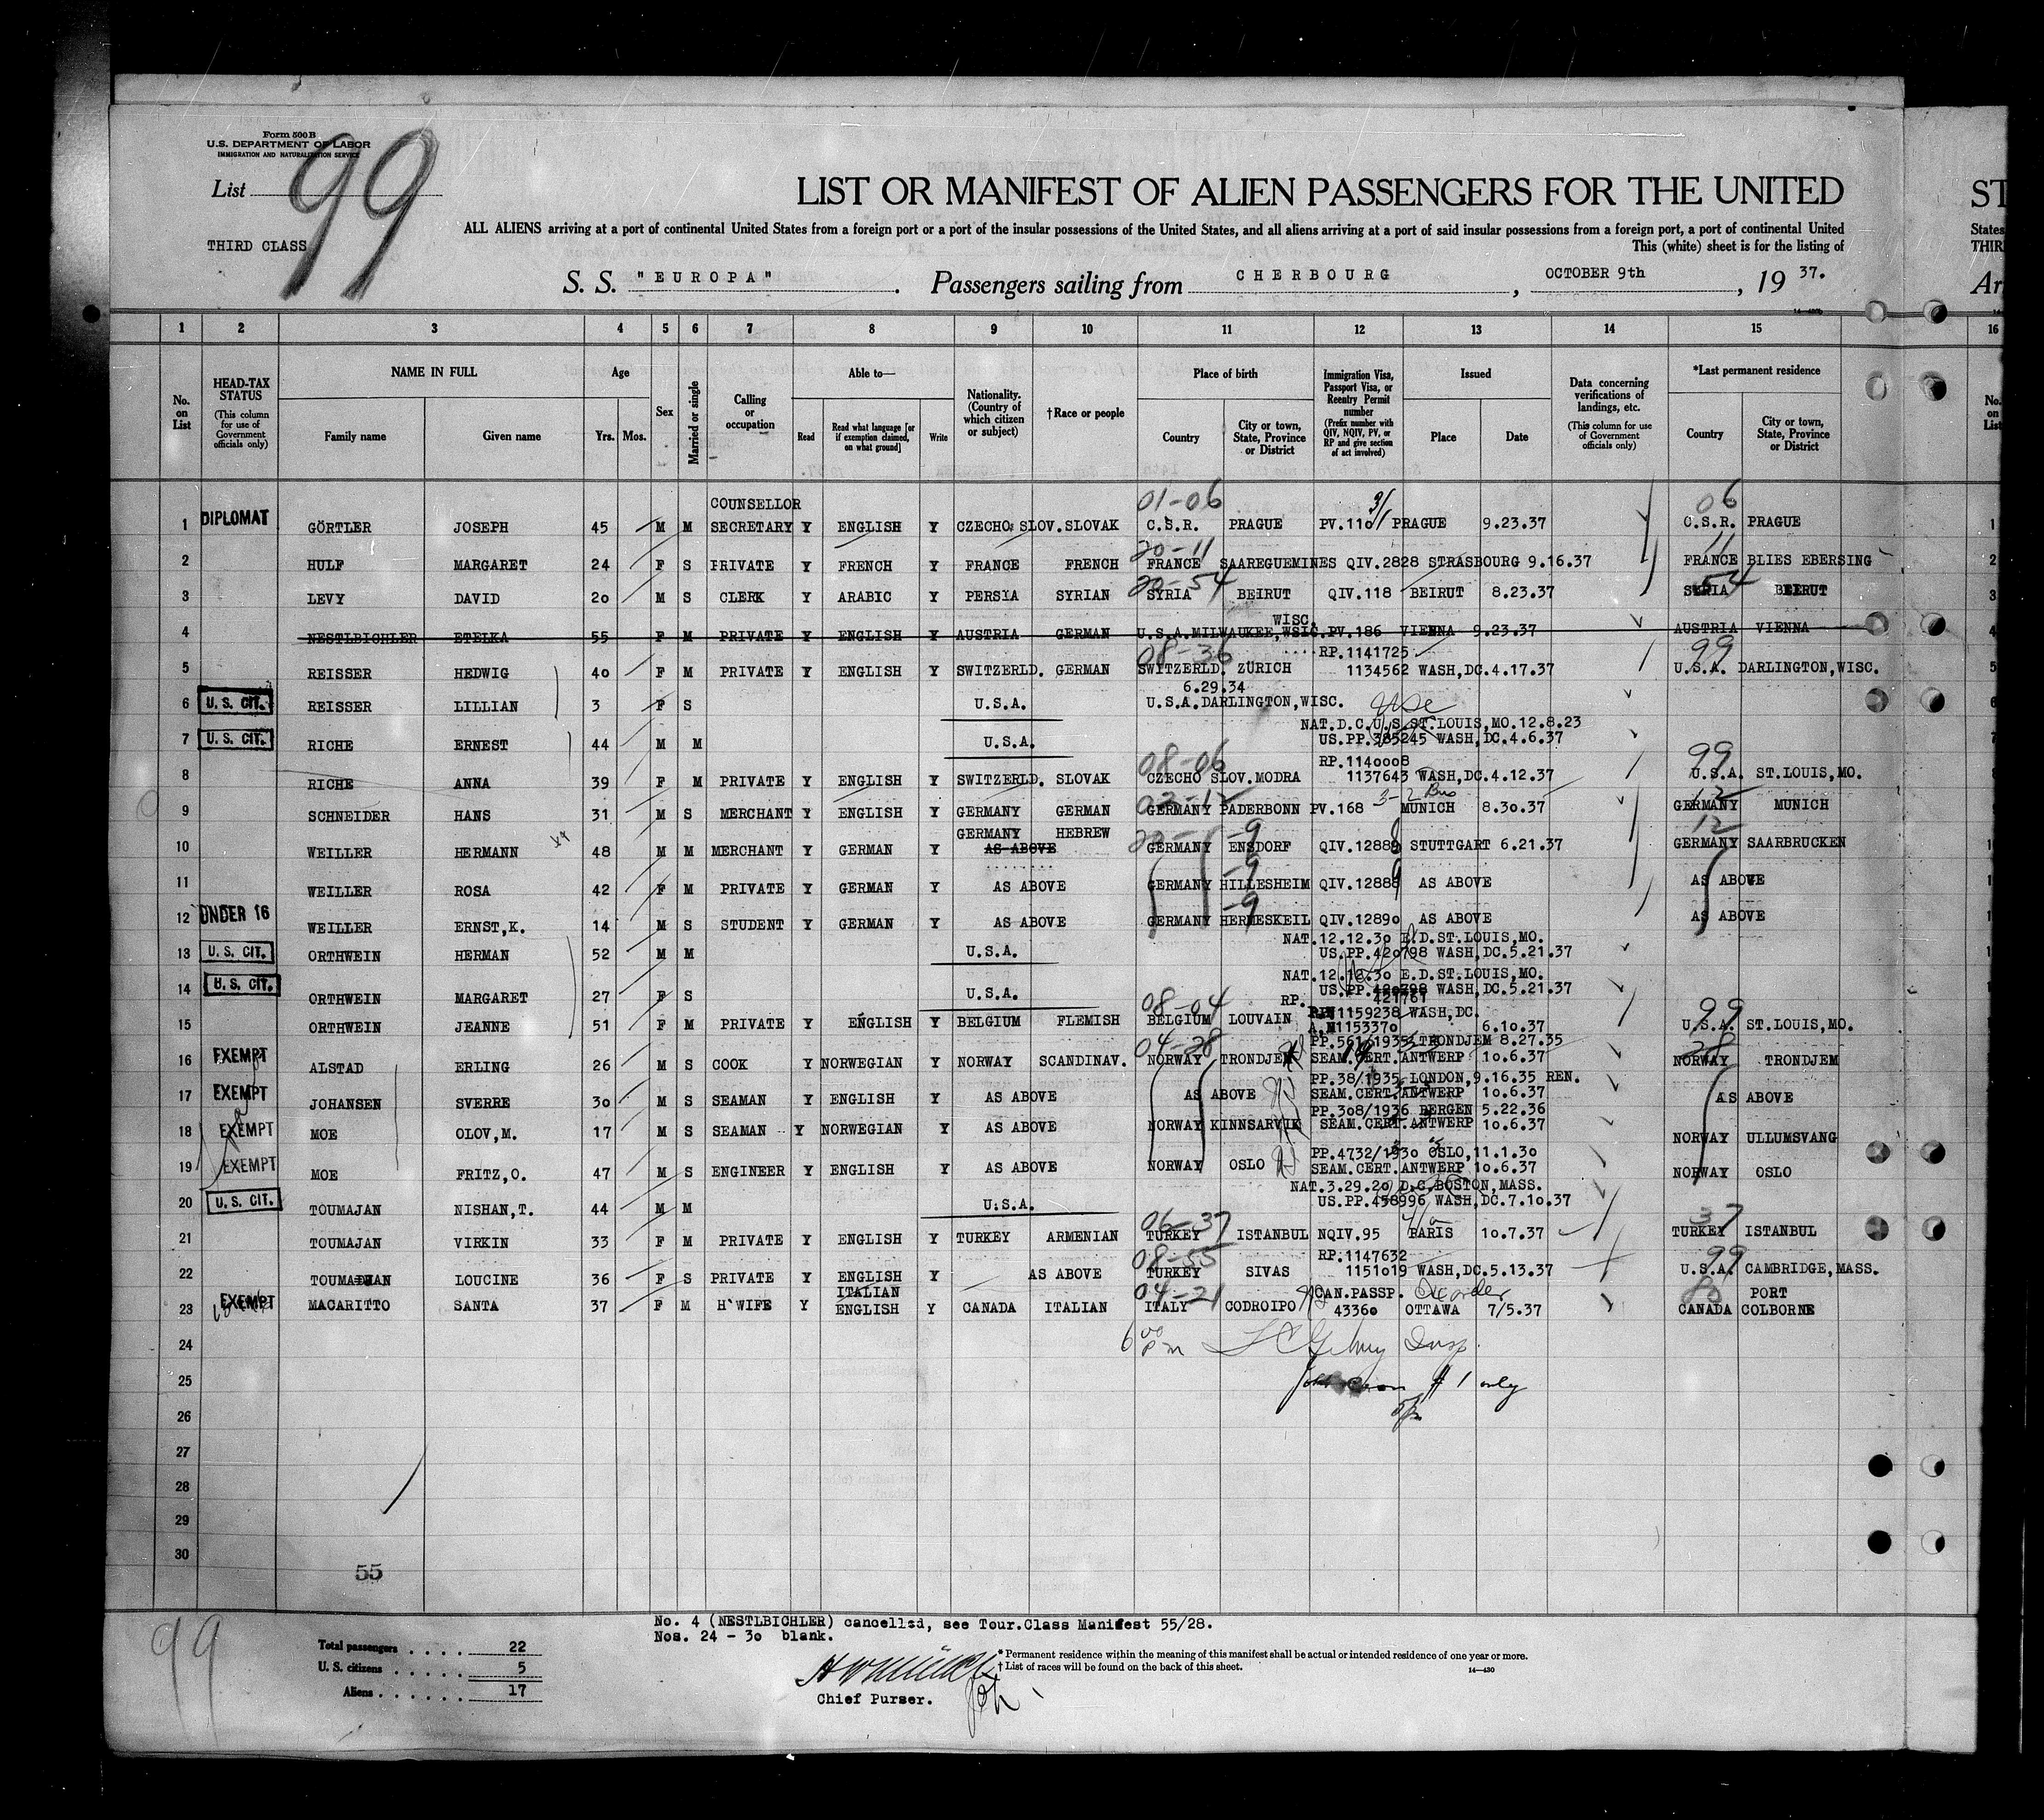 Form 500 B
U.S. DEPARTMENT OF LABOR
IMMIGRATION AND NATURALIZATION SERVICE
List 99
THIRD CLASS
LIST OR MANIFEST OF ALIEN PASSENGERS FOR THE UNITED
ST
ALL ALIENS arriving at a port of continental United States from a foreign port or a port of the insular possessions of the United States, and all aliens arriving at a port of said insular possessions from a foreign port, a port of continental United
States
This (white) sheet is for the listing of
THIR
S. S. "EUROPA". Passengers sailing from CHERBOURG, OCTOBER 9th, 19 37.
1 2 3 4 5 6 7 8 9 10 11 12 13 14 15 16
No. on List
HEAD-TAX STATUS (This column for use of Government officials only)
NAME IN FULL
Family name Given name
Age
Yrs. Mos.
Sex
Married or single
Calling or occupation
Able to—
Read
Read what language [or if exemption claimed, on what ground]
Write
Nationality. (Country of which citizen or subject)
†Race or people
Place of birth
Country
City or town, State, Province or District
Immigration Visa, Passport Visa, or Reentry Permit number (Prefix number with QIV, NQIV, PV, or RP and give section of act involved)
Issued
Place Date
Data concerning verifications of landings, etc. (This column for use of Government officials only)
*Last permanent residence
Country
City or town, State, Province or District
No. on List
COUNSELLOR 01-06 06
1 DIPLOMAT GÖRTLER JOSEPH 45 M M SECRETARY Y ENGLISH Y CZECHO SLOV. SLOVAK C.S.R. PRAGUE PV.110 PRAGUE 9.23.37 C.S.R. PRAGUE
20-11 11
2 HULF MARGARET 24 F S PRIVATE Y FRENCH Y FRANCE FRENCH FRANCE SAAREGUEMINES QIV.2828 STRASBOURG 9.16.37 FRANCE BLIES EBERSING
20-54 54
3 LEVY DAVID 20 M S CLERK Y ARABIC Y PERSIA SYRIAN SYRIA BEIRUT QIV.118 BEIRUT 8.23.37 SYRIA BEIRUT
WISC.
4 NESTLBICHLER ETELKA 55 F M PRIVATE Y ENGLISH Y AUSTRIA GERMAN U.S.A. MILWAUKEE, WSIC. PV.186 VIENNA 9.23.37 AUSTRIA VIENNA
08-36 RP.1141725 99
5 REISSER HEDWIG 40 F M PRIVATE Y ENGLISH Y SWITZERLD. GERMAN SWITZERLD. ZÜRICH 1134562 WASH,DC.4.17.37 U.S.A. DARLINGTON,WISC.
6.29.34
6 U.S. CIT. REISSER LILLIAN 3 F S U.S.A. U.S.A.DARLINGTON,WISC.
NAT.D.C.U.S.ST.LOUIS,MO.12.8.23
7 U.S. CIT. RICHE ERNEST 44 M M U.S.A. US.PP.385245 WASH,DC.4.6.37
08-06 RP.1140008 99
8 RICHE ANNA 39 F M PRIVATE Y ENGLISH Y SWITZERLD. SLOVAK CZECHO SLOV.MODRA 1137643 WASH,DC.4.12.37 U.S.A. ST.LOUIS,MO.
12
9 SCHNEIDER HANS 31 M S MERCHANT Y ENGLISH Y GERMANY GERMAN GERMANY PADERBONN PV.168 MUNICH 8.30.37 GERMANY MUNICH
GERMANY HEBREW 12
10 WEILLER HERMANN 48 M M MERCHANT Y GERMAN Y AS ABOVE GERMANY ENSDORF QIV.12888 STUTTGART 6.21.37 GERMANY SAARBRUCKEN
11 WEILLER ROSA 42 F M PRIVATE Y GERMAN Y AS ABOVE GERMANY HILLESHEIM QIV.12889 AS ABOVE AS ABOVE
12 UNDER 16 WEILLER ERNST,K. 14 M S STUDENT Y GERMAN Y AS ABOVE GERMANY HERMESKEIL QIV.12890 AS ABOVE AS ABOVE
NAT.12.12.30 E.D.ST.LOUIS,MO.
13 U.S. CIT. ORTHWEIN HERMAN 52 M M U.S.A. US.PP.420798 WASH,DC.5.21.37
NAT.12.12.30 E.D.ST.LOUIS,MO.
14 U.S. CIT. ORTHWEIN MARGARET 27 F S U.S.A. US.PP.420798 WASH,DC.5.21.37
421761
08-04 RP. 1159238 WASH,DC. 99
15 ORTHWEIN JEANNE 51 F M PRIVATE Y ENGLISH Y BELGIUM FLEMISH BELGIUM LOUVAIN 1153370 6.10.37 U.S.A. ST.LOUIS,MO.
04-28 PP.561/1935 TRONDJEM 8.27.35 28
16 EXEMPT ALSTAD ERLING 26 M S COOK Y NORWEGIAN Y NORWAY SCANDINAV. NORWAY TRONDJEM SEAM.CERT.ANTWERP 10.6.37 NORWAY TRONDJEM
PP.38/1935 LONDON,9.16.35 REN.
17 EXEMPT JOHANSEN SVERRE 30 M S SEAMAN Y ENGLISH Y AS ABOVE AS ABOVE SEAM.CERT.ANTWERP 10.6.37 AS ABOVE
PP.308/1936 BERGEN 5.22.36
18 EXEMPT MOE OLOV,M. 17 M S SEAMAN Y NORWEGIAN Y AS ABOVE NORWAY KINNSARVIK SEAM.CERT.ANTWERP 10.6.37 NORWAY ULLUMSVANG
PP.4732/1930 OSLO,11.1.30
19 EXEMPT MOE FRITZ,O. 47 M S ENGINEER Y ENGLISH Y AS ABOVE NORWAY OSLO SEAM.CERT.ANTWERP 10.6.37 NORWAY OSLO
NAT.3.29.20 D.C.BOSTON,MASS.
20 U.S. CIT. TOUMAJAN NISHAN,T. 44 M M U.S.A. US.PP.458996 WASH,DC.7.10.37
06-37 37
21 TOUMAJAN VIRKIN 33 F M PRIVATE Y ENGLISH Y TURKEY ARMENIAN TURKEY ISTANBUL NQIV.95 PARIS 10.7.37 TURKEY ISTANBUL
08-55 RP.1147632 99
22 LOUCINE 36 F S PRIVATE Y ENGLISH Y AS ABOVE TURKEY SIVAS 1151019 WASH,DC.5.13.37 U.S.A. CAMBRIDGE,MASS.
ITALIAN 04-21 CAN.PASSP. PORT
23 EXEMPT MACARITTO SANTA 37 F M H'WIFE Y ENGLISH Y CANADA ITALIAN ITALY CODROIPO 43360 OTTAWA 7/5.37 CANADA COLBORNE
24
25 # 1 only
26
27
28
29
30
55
No. 4 (NESTLBICHLER) cancelled, see Tour.Class Manifest 55/28.
Nos. 24 - 30 blank.
99
Total passengers 22
U. S. citizens 5
Aliens 17
Chief Purser.
* Permanent residence within the meaning of this manifest shall be actual or intended residence of one year or more.
† List of races will be found on the back of this sheet.
14—430